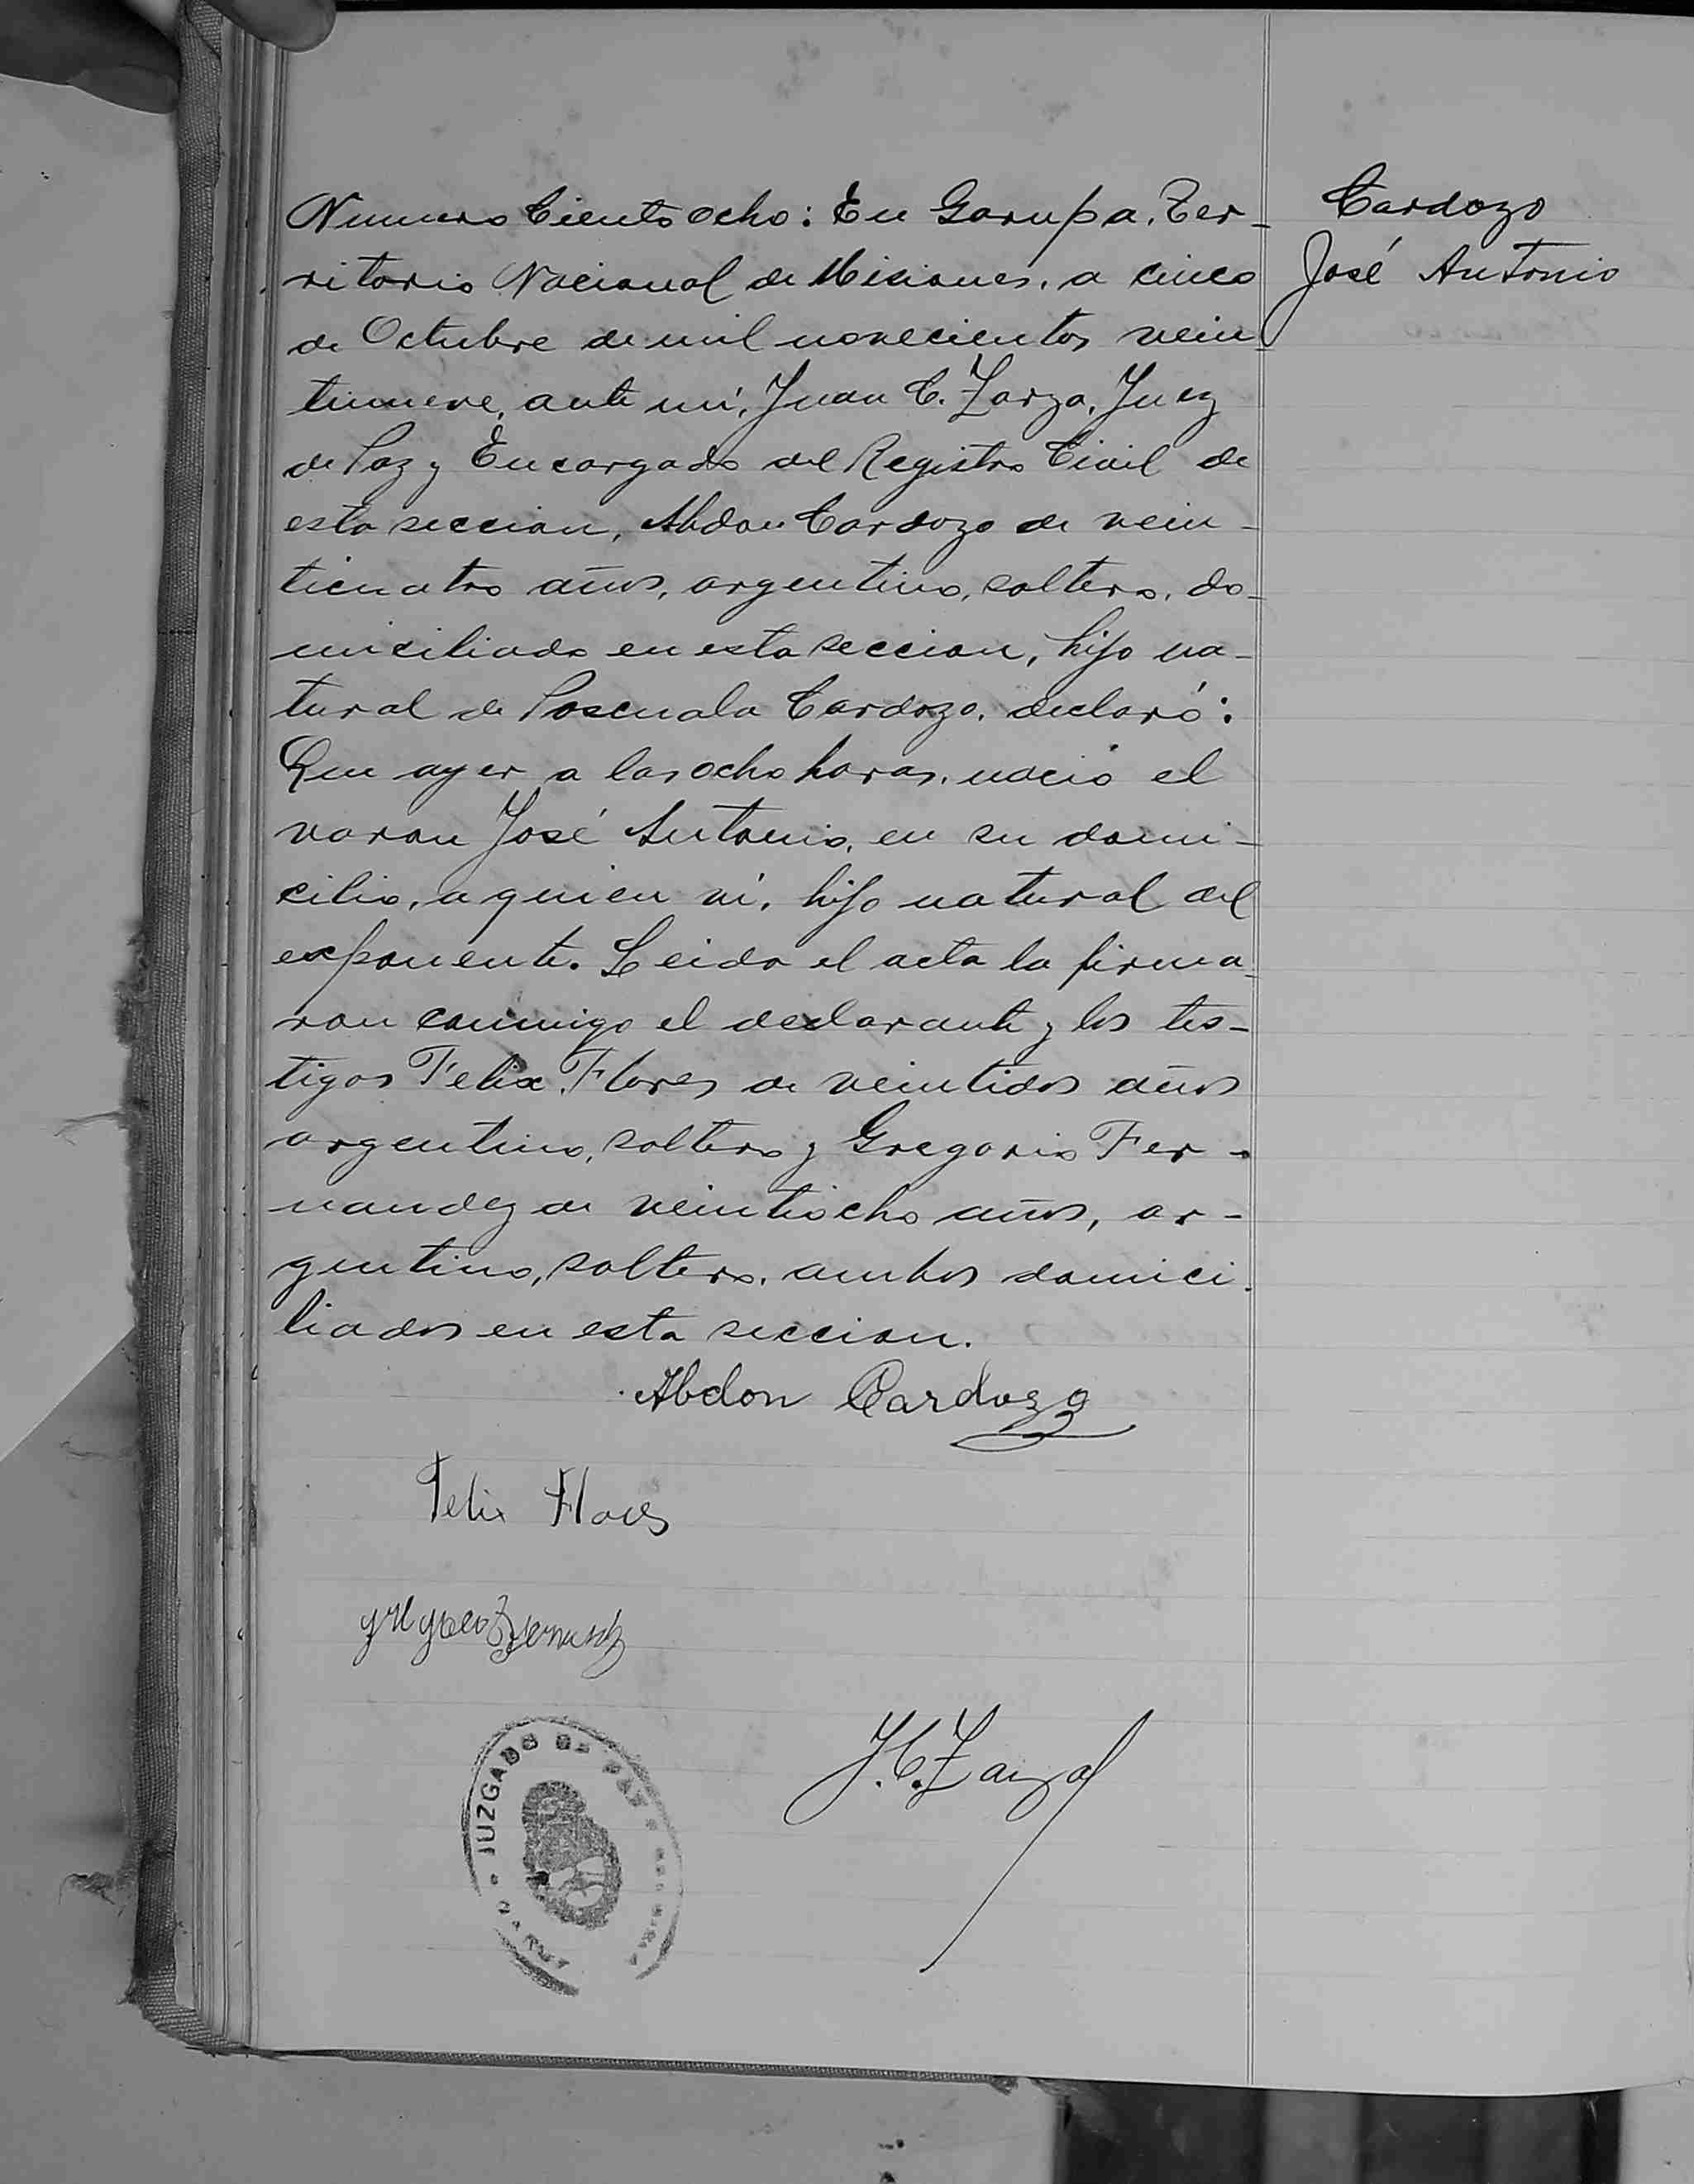 Numero Ciento ocho: En Garupa, Ter-
ritorio Nacional de Misiones, a cinco
de Octubre de mil novecientos vein
tinueve, ante mi, Juan C. Zarza, Juez
de Paz y Encargado del Registro Civil de
esta seccion, Abdon Cardozo de vein-
ticuatro años, argentino, soltero, do-
miciliado en esta seccion, hijo na-
tural de Pascuala Cardozo, declaró:
Que ayer a las ocho horas, nació el
varon José Antonio, en su domi-
cilio, a quien vi, hijo natural del
exponente. Leida el acta la firma-
ron conmigo el declarante y los tes-
tigos Felix Flores de veintidos años
argentino, soltero y Gregorio Fer-
nandez de veintiocho años, ar-
gentino, soltero, ambos domici-
liados en esta seccion.
Cardozo
José Antonio
Abdon Cardozo
Felix Flores
J. C. Zarza
JUZGADO DE PAZ